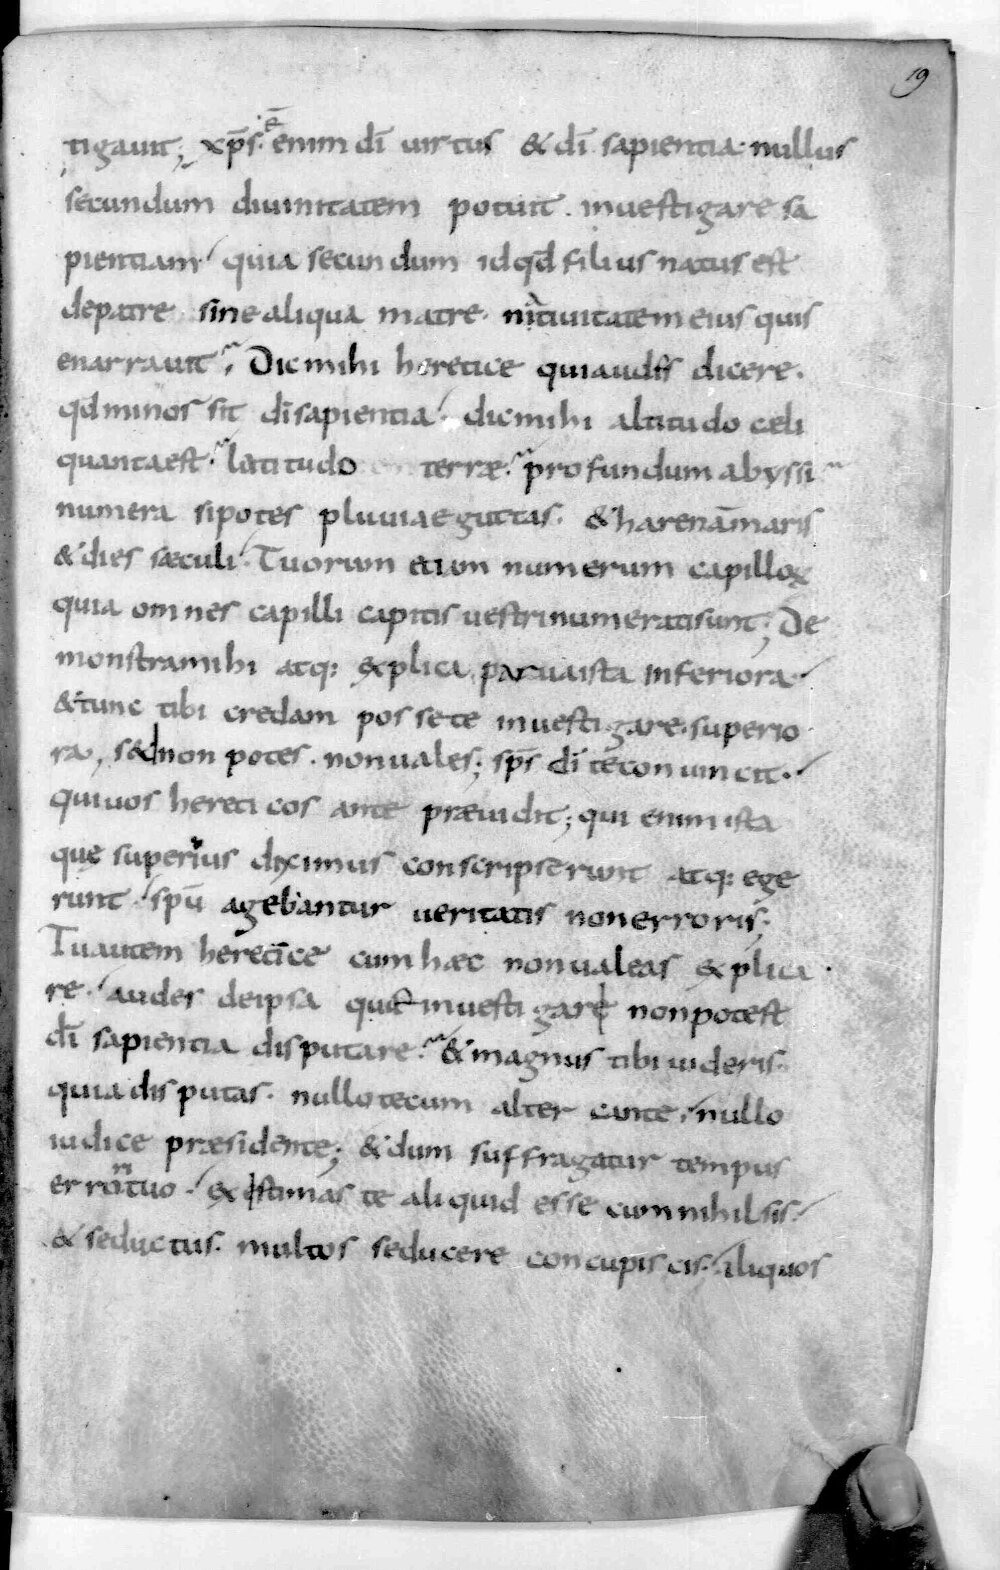 19
tigauit; xp̄s ē enim dī uirtus & dī sapientia. nullus
secundum diuinitatem potuit. inuestigare sa
pientiam quia secundum id qđ filius natus est
de patre sine aliqua matre. natiuitatem eius quis
enarrauit; Dic mihi heretice qui audis dicere.
qđ minos sit dī sapientia. dic mihi altitudo cæli
quanta est. latitudo terræ. profundum abyssi
numera si potes pluuiae guttas. & harenā maris
& dies sæculi. Tuorum etiam numerum capilloꝝ
quia omnes capilli capitis uestri numerati sunt; De
monstra mihi atq: explica parua ista inferiora
& tunc tibi credam posse te inuestigare superio
ra, sed non potes. non uales; sp̄s dī te conuincit.
qui uos hereticos ante præuidit; qui enim ista
quę superius diximus conscripserunt atq: ege
runt spū agebantur ueritatis non erroris;
Tu autem heretice cum hæc non ualeas explica
re. audes de ipsa quā inuestigare non potest
dī sapientia disputare. & magnus tibi uideris
quia disputas. nullo tecum altercante, nullo
iudice præsidente; & dum suffragatur tempus
errori tuo. existimas te aliquid esse cum nihil sis.
& seductus. multos seducere concupiscis. aliquos